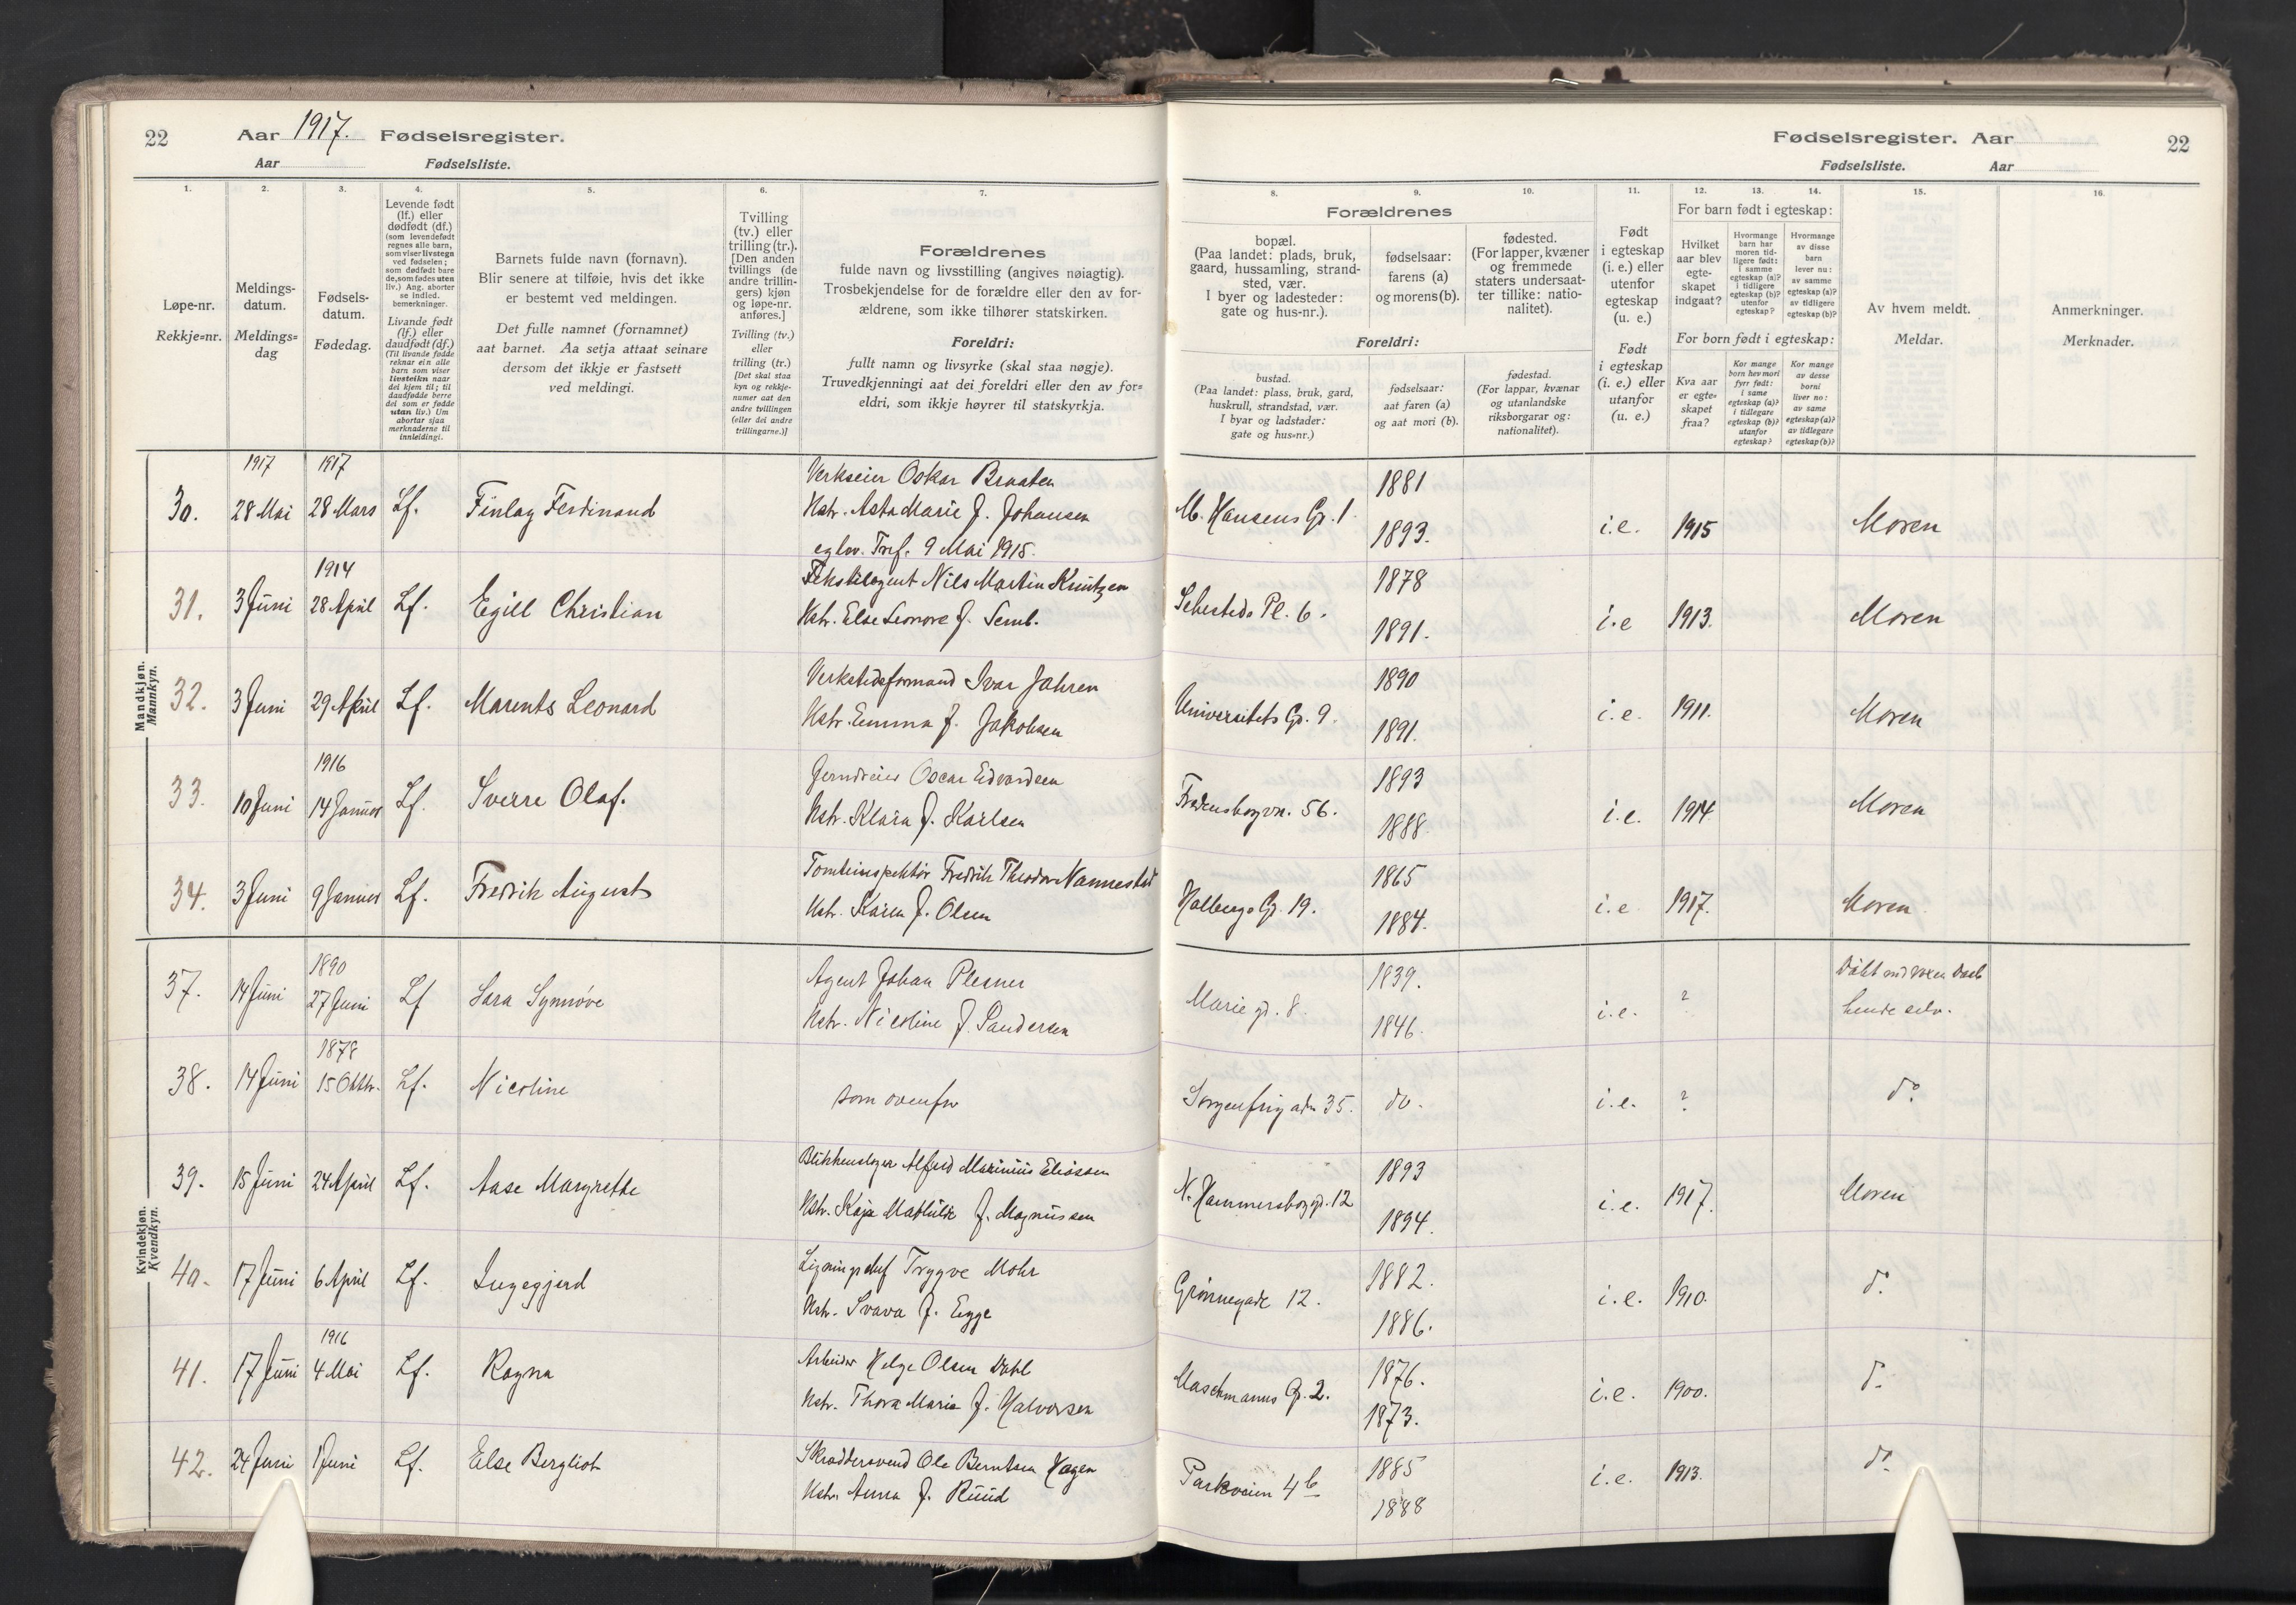 22 Aar 1917. Fødselsregister.
Aar Fødselsliste.
Fødselsregister. Aar 22
Fødselsliste. Aar
1. 2. 3. 4. 5. 6. 7. 8. 9. 10. 11. 12. 13. 14. 15. 16.
Løpe-nr.
Rekkje=nr.
Meldings-
datum.
Meldings=
dag
Fødsels-
datum.
Fødedag.
Levende født
(lf.) eller
dødfødt (df.)
(som levendefødt
regnes alle barn,
som viser livstegn
ved fødselen;
som dødfødt bare
de, som fødes uten
liv.) Ang. aborter
se indled.
bemerkninger.
Livande født
(lf.) eller
daudfødt (df.)
(Til livande fødde
reknar ein alle
barn som viser
livsteikn naar
dei kjem til; til
daudfødde berre
dei som er fødde
utan liv.) Um
abortar sjaa
merknaderne til
innleidingi.
Barnets fulde navn (fornavn).
Blir senere at tilføie, hvis det ikke
er bestemt ved meldingen.
Det fulle namnet (fornamnet)
aat barnet. Aa setja attaat seinare
dersom det ikkje er fastsett
ved meldingi.
Tvilling
(tv.) eller
trilling (tr.).
[Den anden
tvillings (de
andre trillin-
gers) kjøn
og løpe-nr.
anføres.]
Tvilling (tv.)
eller
trilling (tr.)
[Det skal staa
kyn og rekkje-
numer aat den
andre tvillingen
(eller dei andre
trillingarne.)]
Forældrenes
fulde navn og livsstilling (angives nøiagtig).
Trosbekjendelse for de forældre eller den av for-
ældrene, som ikke tilhører statskirken.
Foreldri:
fullt namn og livsyrke (skal staa nøgje).
Truvedkjenningi aat dei foreldri eller den av for=
eldri, som ikkje høyrer til statskyrkja.
Forældrenes
bopæl.
(Paa landet: plads, bruk,
gaard, hussamling, strand-
sted, vær.
I byer og ladesteder:
gate og hus-nr.).
fødselsaar:
farens (a)
og morens (b).
fødested.
(For lapper, kvæner
og fremmede
staters undersaat-
ter tillike: natio-
nalitet).
Foreldri:
bustad.
(Paa landet: plass, bruk, gard,
huskrull, strandstad, vær.
I byar og ladstader:
gate og hus=nr.)
fødselsaar:
aat faren (a)
og aat mori (b).
fødestad.
(For lappar, kvænar
og utanlandske
riksborgarar og:
nationalitet).
Født
i egteskap
(i. e.) eller
utenfor
egteskap
(u. e.)
Født
i egteskap
(i. e.) eller
utanfor
(u. e.)
For barn født i egteskap:
Hvilket
aar blev
egte-
skapet
indgaat?
Hvormange
barn har
moren tid-
ligere født:
i samme
egteskap (a)?
i tidligere
egteskap (b)?
utenfor
egteskap?
Hvormange
av disse
barn
lever nu:
av samme
egteskap (a)?
av tidligere
egteskap (b)?
For born født i egteskap:
Kva aar
er egte=
skapet
fraa?
Kor mange
born hev mori
fyrr født:
i same
egteskap (a)?
i tidlegare
egteskap (b)?
utanfor
egteskap?
Kor mange
av desse
borni
liver no:
av same
egteskap (a)?
av tidlegare
egteskap (b)?
Av hvem meldt.
Meldar.
Anmerkninger.
Merknader.
Mandkjøn.
Mannkyn.
1917 1917
30. 28 Mai 28 Mars Lf. Finlay Ferdinand
Verkseier Oskar Braaten
Hstr. Asta Marie f. Johansen
eglov. Tref. 9 Mai 1915.
M. Hansens Gt. 1 1881 1893. i.e. 1915 Moren
1914
31. 3 Juni 28 April Lf. Egill Christian
Tekstilagent Nils Martin Knutzen
Hstr. Else Leonore f. Semb.
Sehesteds Pl. 6. 1878 1891. i.e 1913. Moren
32. 3 Juni 29 April Lf. Marents Leonard
Verkstedsformand Ivar Jahren
Hstr. Emma f. Jakobsen
Universitets Gt. 9. 1890 1891. i.e. 1911. Moren
1916
33. 10 Juni 14 Januar Lf. Sverre Olaf.
Jerndreier Oscar Edvardsen
Hstr. Klara f. Karlsen
Fredensborgvn. 56. 1893 1888. i.e. 1914 Moren
34. 3 Juni 9 Januar Lf. Fredrik August
Tomteinspektør Fredrik Theodor Nannestad
Hstr. Karen f. Olsen
Holbergs Gt. 19. 1865 1884. i.e 1917. Moren
Kvindekjøn.
Kvendkyn.
1890
37. 14 Juni 27 Juni Lf Sara Synnøve
Agent Johan Plesner
Hstr. Nicoline f. Sandersen
Marie gt. 8. 1839. 1846. i.e. ?
Døbt ved voxen Daab
hende selv.
1878
38. 14 Juni 15 Oktbr. Lf. Nicoline
som ovenfor
Sorgenfrigaten 35. do. i.e. ? do
39. 15 Juni 24 April Lf. Aase Margrethe
Blikkenslager Alfred Marinius Eliassen
Hstr. Kaja Mathilde f. Magnussen
N. Hammersborggt. 12 1893 1894. i.e. 1917. Moren
40. 17 Juni 6 April Lf. Ingegjerd
Ligningschef Trygve Mohr
Hstr. Svava f. Egge
Grønnegade 12. 1882. 1886. i.e. 1910. do
1916
41. 17 Juni 4 Mai Lf. Ragna
Arbeider Helge Olsen Dahl
Hstr. Thora Marie f. Halvorsen
Maschmanns Gt. 2. 1876. 1873. i.e. 1900. do
42. 24 Juni 1 Juni Lf. Else Bergliot
Skræddersvend Ole Berntsen Hagen
Hstr. Anna f. Ruud
Parkveien 4b 1885 1888 i.e. 1913. do